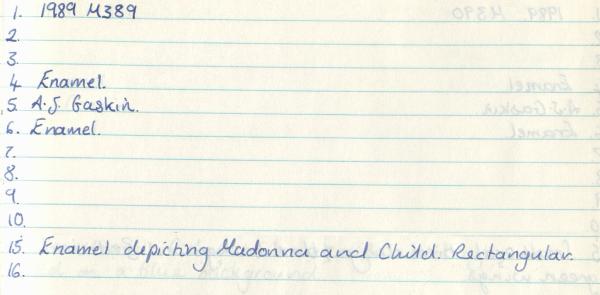 1. 1989 M389
2.
3.
4 Enamel.
5. A.J. Gaskin.
6. Enamel.
7.
8.
9.
10.
15. Enamel depicting Madonna and Child. Rectangular.
16.